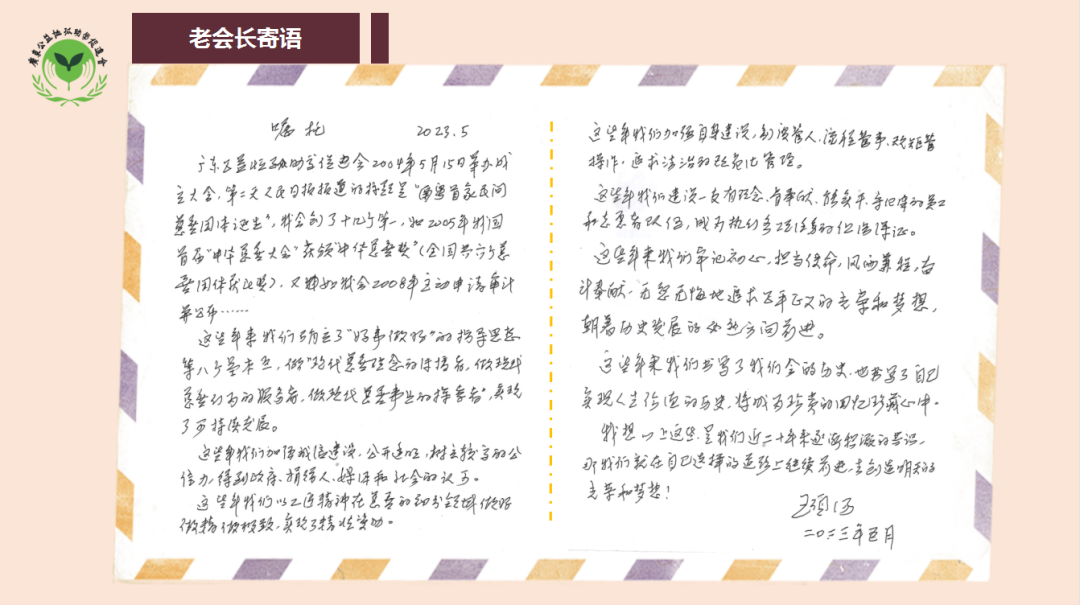 老会长寄语
广东公益恤孤助学促进会
嘱托 2023.5
广东公益恤孤助学促进会2004年5月15日举办成
立大会，第二天人民日报报道的标题是“南粤首家民间
慈善团体诞生”，我会创了十几个第一，如2005年我国
首届“中华慈善大会”荣领“中华慈善奖”（全国共六个慈
善团体获此奖），又譬如我会2008年主动申请审计
并公布……
这些年来我们确立了“好事做好”的指导思想
第八个基本点，做“现代慈善理念的传播者，做现代
慈善行为的服务者，做现代慈善事业的探索者”，实现
了可持续发展。
这些年我们加强诚信建设，公开透明，树立较高的公
信力，得到政府、捐赠人、媒体和社会的认可。
这些年我们以工匠精神在慈善的助学领域做好
做精做极致，实现了精准资助。
这些年我们加强自身建设，制度管人、流程管事、规矩管
操作，追求法治的规范化管理。
这些年我们建设一支有理念、肯奉献、能实干、守纪律的员工
和志愿者队伍，成为执行各项任务的组织保证。
这些年来我们牢记初心，担当使命，风雨兼程，奋
斗奉献，无怨无悔地追求公平正义的光荣和梦想，
朝着历史发展的必然方向前进。
这些年来我们书写了我们会的历史，也书写了自己
实现人生价值的历史，将成为珍贵的回忆珍藏心中。
我想以上这些，是我们近二十年来逐渐积淀的共识，
那我们就在自己选择的道路上继续前进，去创造明天的
光荣和梦想！
二〇二三年五月